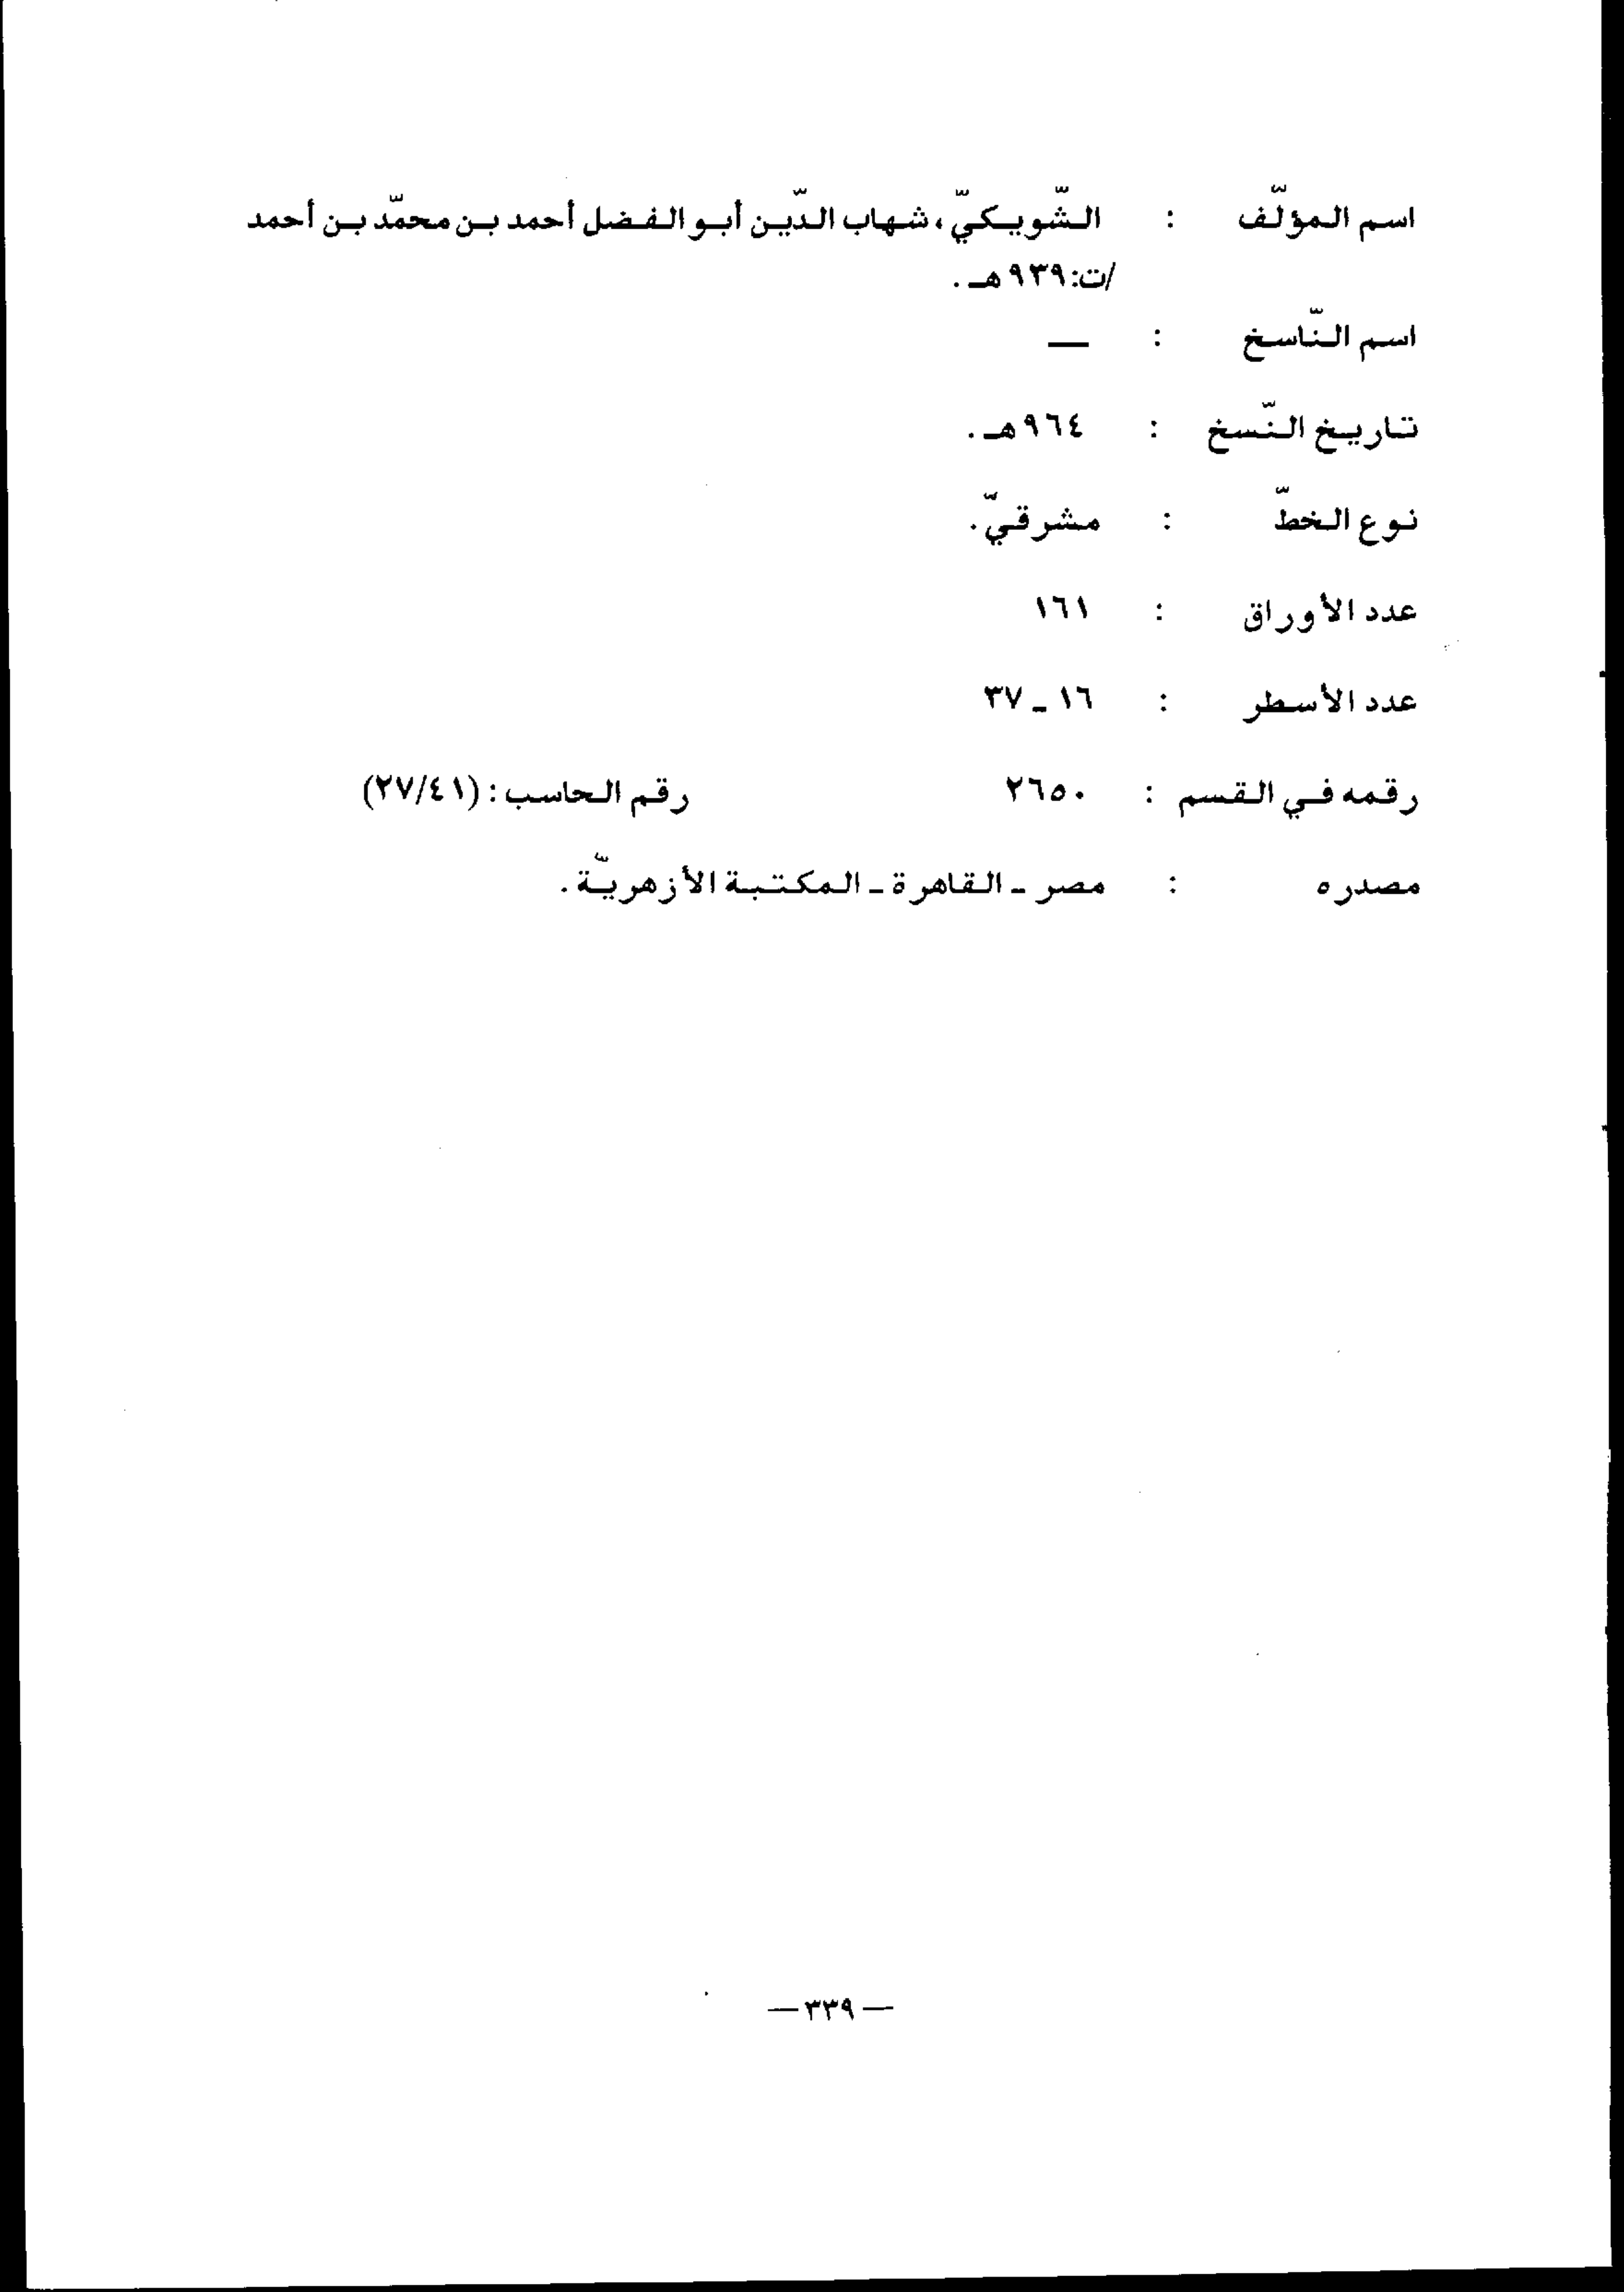 اسم المؤلّف : الشّويكيّ، شهاب الدّين أبو الفضل أحمد بن محمّد بن أحمد
/ت: ٩٣٩هـ.
اسم النّاسخ : —
تاريخ النّسخ : ٩٦٤هـ.
نوع الخطّ : مشرقيّ.
عدد الأوراق : ١٦١
عدد الأسطر : ١٦ - ٣٧
رقمه في القسم : ٢٦٥٠ رقم الحاسب: (٢٧/٤١)
مصدره : مصر - القاهرة - المكتبة الأزهريّة.
— ٣٣٩ —